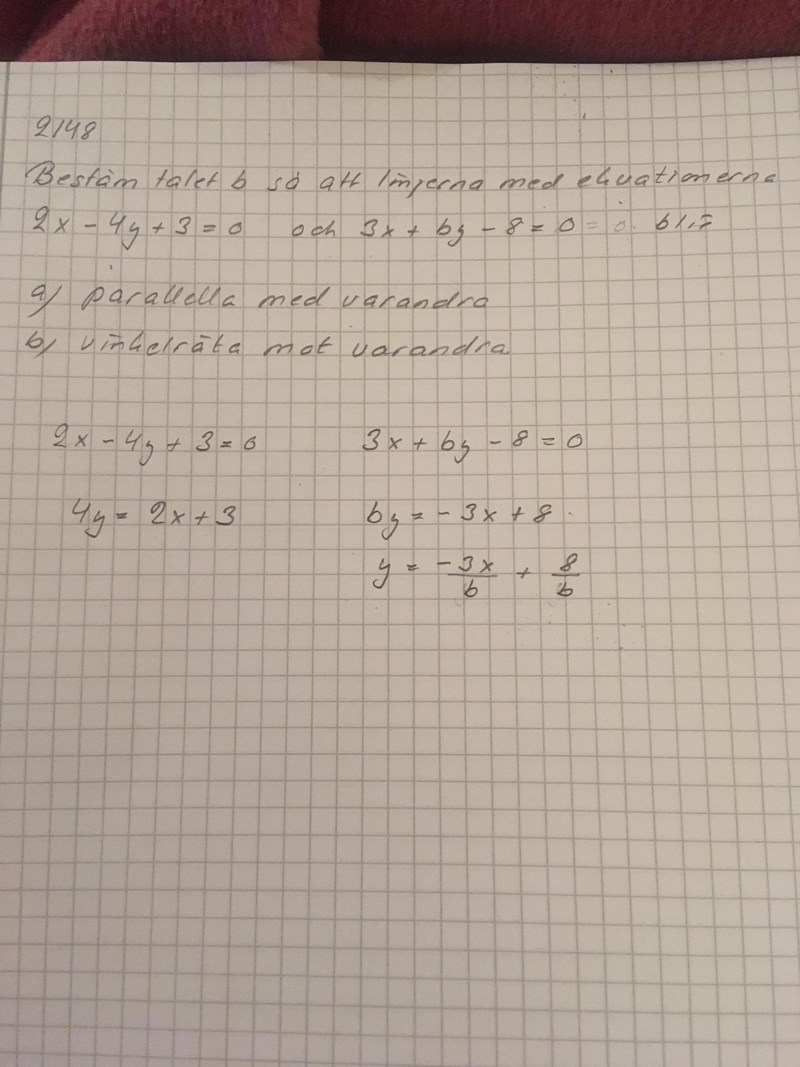 2148
Bestäm talet b så att linjerna med ekvationerna
2x - 4y + 3 = 0 och 3x + by - 8 = 0 = 0. blir
a) parallella med varandra
b) vinkelräta mot varandra.
2x - 4y + 3 = 0 3x + by - 8 = 0
4y = 2x + 3 by = -3x + 8
y = -3x/b + 8/b